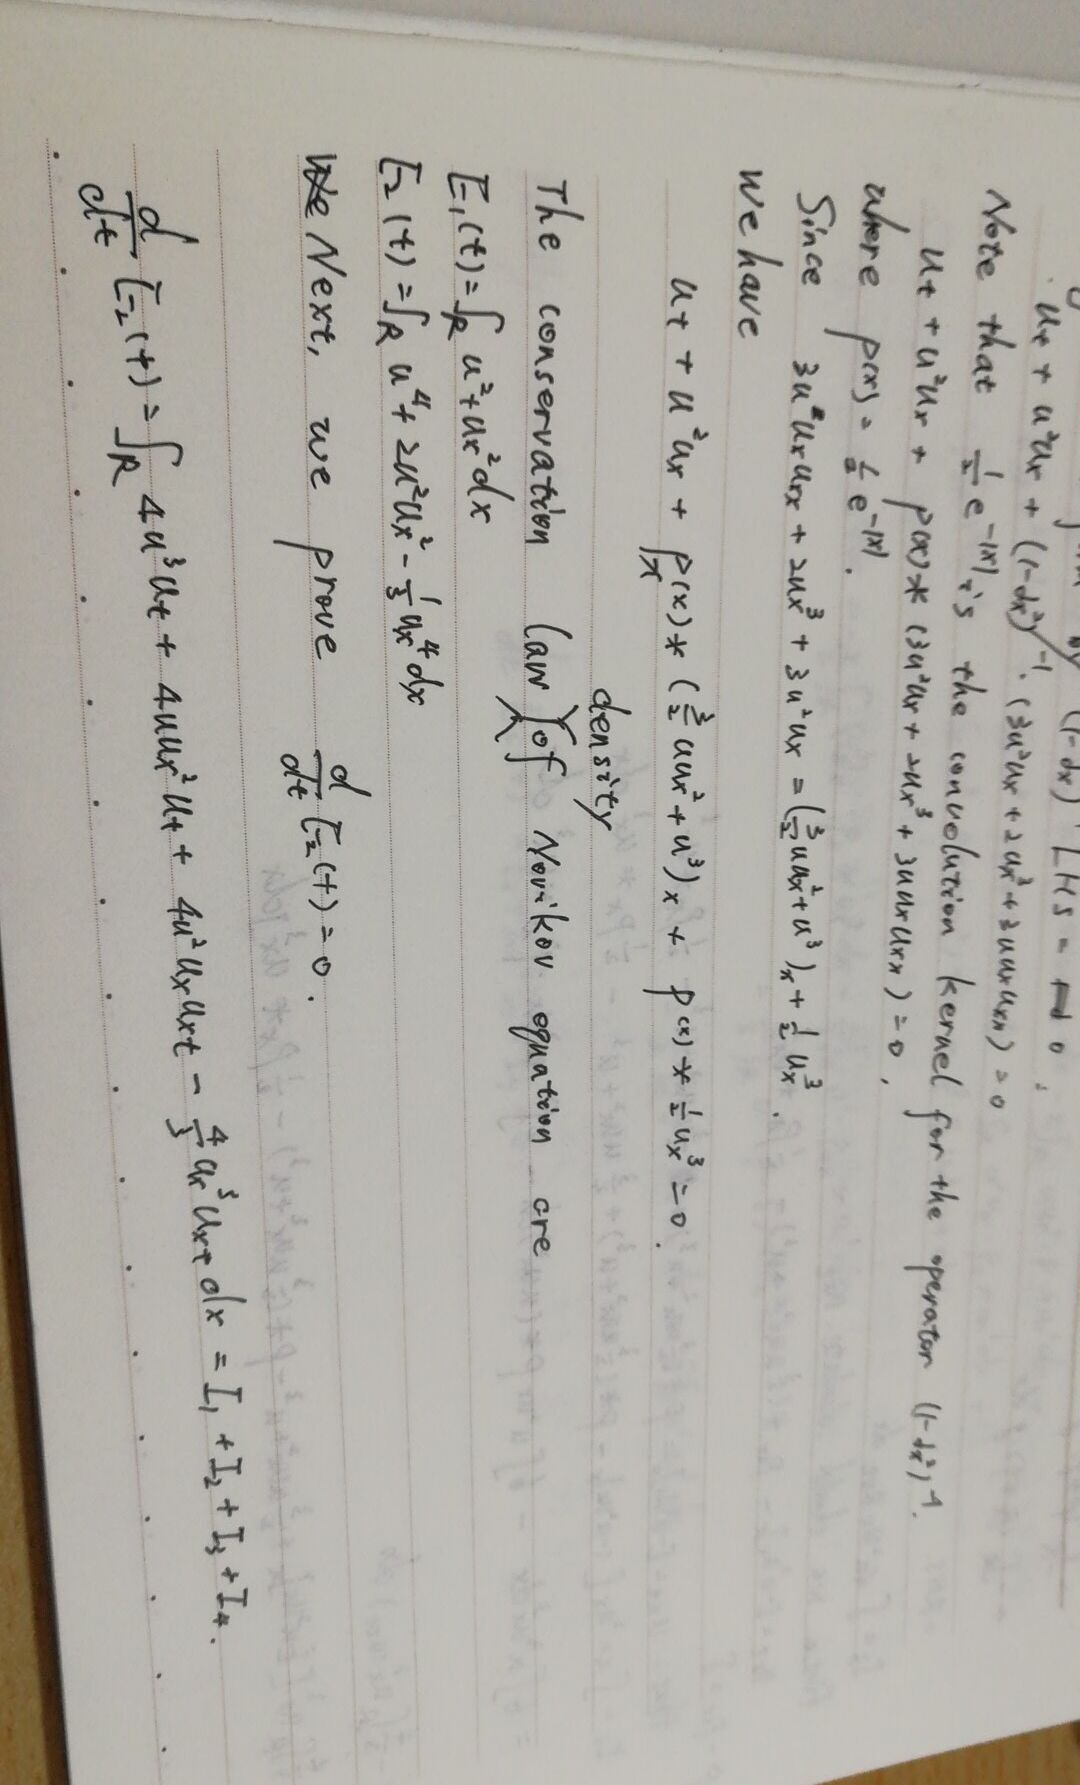 by (1-∂x²)⁻¹ LHS = 0.
ut + u²ux + (1-∂x²)⁻¹·(3u²ux + 2ux³ + 3uuxuxx) = 0
Note that ½e^{-|x|} is the convolution kernel for the operator (1-∂x²)⁻¹.
ut + u²ux + p(x) * (3u²ux + 2ux³ + 3uuxuxx) = 0,
where p(x) = ½ e^{-|x|}.
Since 3uuxuxx + 2ux³ + 3u²ux = (3/2 uux² + u³)x + ½ ux³.
We have
ut + u²ux + p(x) * (3/2 uux² + u³)x + p(x) * ½ux³ = 0.
density
The conservation law of Novikov equation are
E₁(t) = ∫R u² + ux² dx
E₂(t) = ∫R u⁴ + 2u²ux² - ⅓ux⁴ dx
Next, we prove d/dt E₂(t) = 0.
d/dt E₂(t) = ∫R 4u³ut + 4uux²ut + 4u²uxuxt - 4/3 ux³uxt dx = I₁ + I₂ + I₃ + I₄.